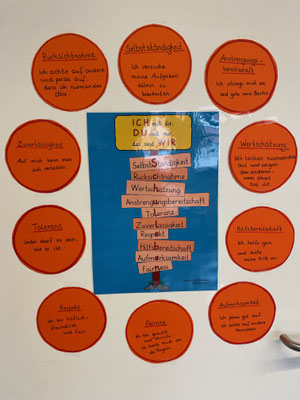 Rücksichtnahme
Ich achte auf andere
und passe auf,
dass ich niemanden
störe
Selbstständigkeit
Ich versuche
meine Aufgaben
allein zu
bearbeiten
Anstrengungs-
bereitschaft
Ich strenge mich an
und gebe mein Bestes
Zuverlässigkeit
Auf mich kann man
sich verlassen.
ICH
DU
WIR
Selbstständigkeit
Rücksichtnahme
Wertschätzung
Anstrengungsbereitschaft
Toleranz
Zuverlässigkeit
Respekt
Hilfsbereitschaft
Aufmerksamkeit
Fairness
Wertschätzung
Wir lachen niemanden
aus und sagen
den anderen,
wenn etwas
toll ist.
Toleranz
Jeder darf so sein,
wie er ist.
Hilfsbereitschaft
Ich helfe gern
und biete
meine Hilfe an.
Respekt
Ich bin höflich,
freundlich
und fair
Fairness
Ich bin gerecht
und ehrlich.
Ich halte mich an
die Regeln.
Aufmerksamkeit
Ich passe gut auf